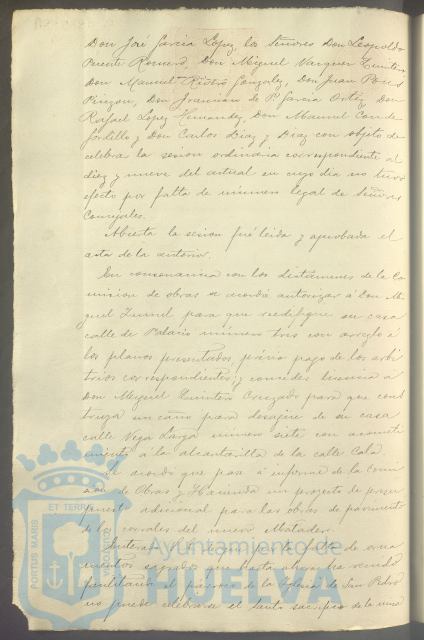 Don José Garcia Lopez, los Señores Don Leopoldo
Puente Romero, Don Miguel Vazquez
Don Manuel Gonzalez, Don Juan Pons
Pinzon, Don Francisco de P. Garcia Ortiz, Don
Rafael Lopez Hernandez, Don Manuel Conde
Gordillo y Don Carlos Diaz y Diaz con objeto de
celebrar la sesion ordinaria correspondiente al
diez y nueve del actual en cuyo dia no tuvo
efecto por falta de número legal de Señores
Concejales.
Abierta la sesion fué leida y aprobada el
acta de la anterior.
En consonancia con los dictámenes de la Co
mision de obras se acordó autorizar á Don Mi
guel para que reedifique su casa
calle de Palacio número tres con arreglo á
los planos presentados, prévio pago de los arbi
trios correspondientes; y conceder licencia á
Don Miguel Quintero Cruzado para que cons
truya un caño para desagüe de su casa
calle Vega Larga número siete con acometi
miento á la alcantarilla de la calle Cala.
Se acordó que pase á informe de la Comi
sion de Obras y Hacienda un proyecto de presu
puesto adicional para las obras de pavimento
de los corrales del nuevo Matadero.
por la falta de orna
mentos sagrados que hasta ahora ha venido
facilitando el párroco de la Iglesia de San Pedro
no puede celebrarse el santo sacrificio de la misa
PORTUS MARIS
ET TERRAE
CUSTODIA
Ayuntamiento de
HUELVA